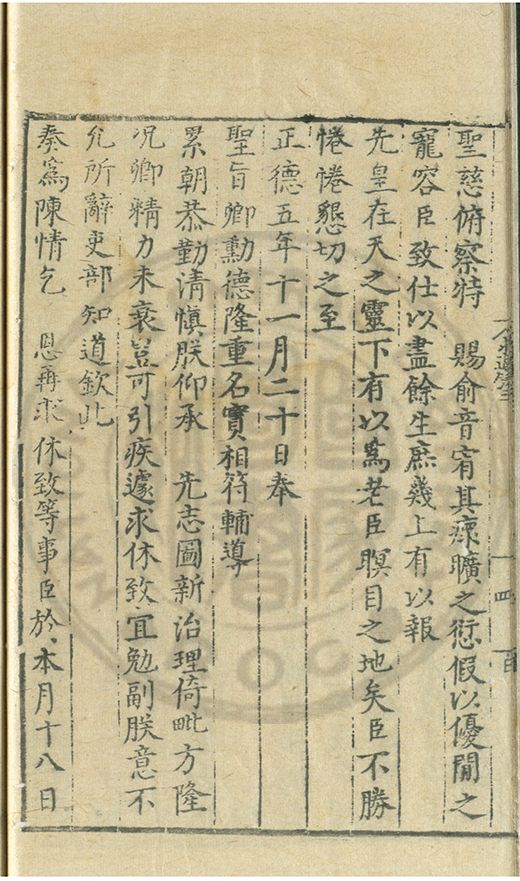 聖慈俯察特　賜俞音宥其瘝曠之愆假以優閒之
寵容臣致仕以盡餘生庶幾上有以報
先皇在天之靈下有以爲老臣瞑目之地矣臣不勝
惓惓懇切之至
正德五年十一月二十日奉
聖旨卿勳德隆重名實相符輔導
累朝恭勤清慎朕仰承　先志圖新治理倚毗方隆
况卿精力未衰豈可引疾遽求休致宜勉副朕意不
允所辭吏部知道欽此
奏爲陳情乞　恩再求休致等事臣於本月十八日